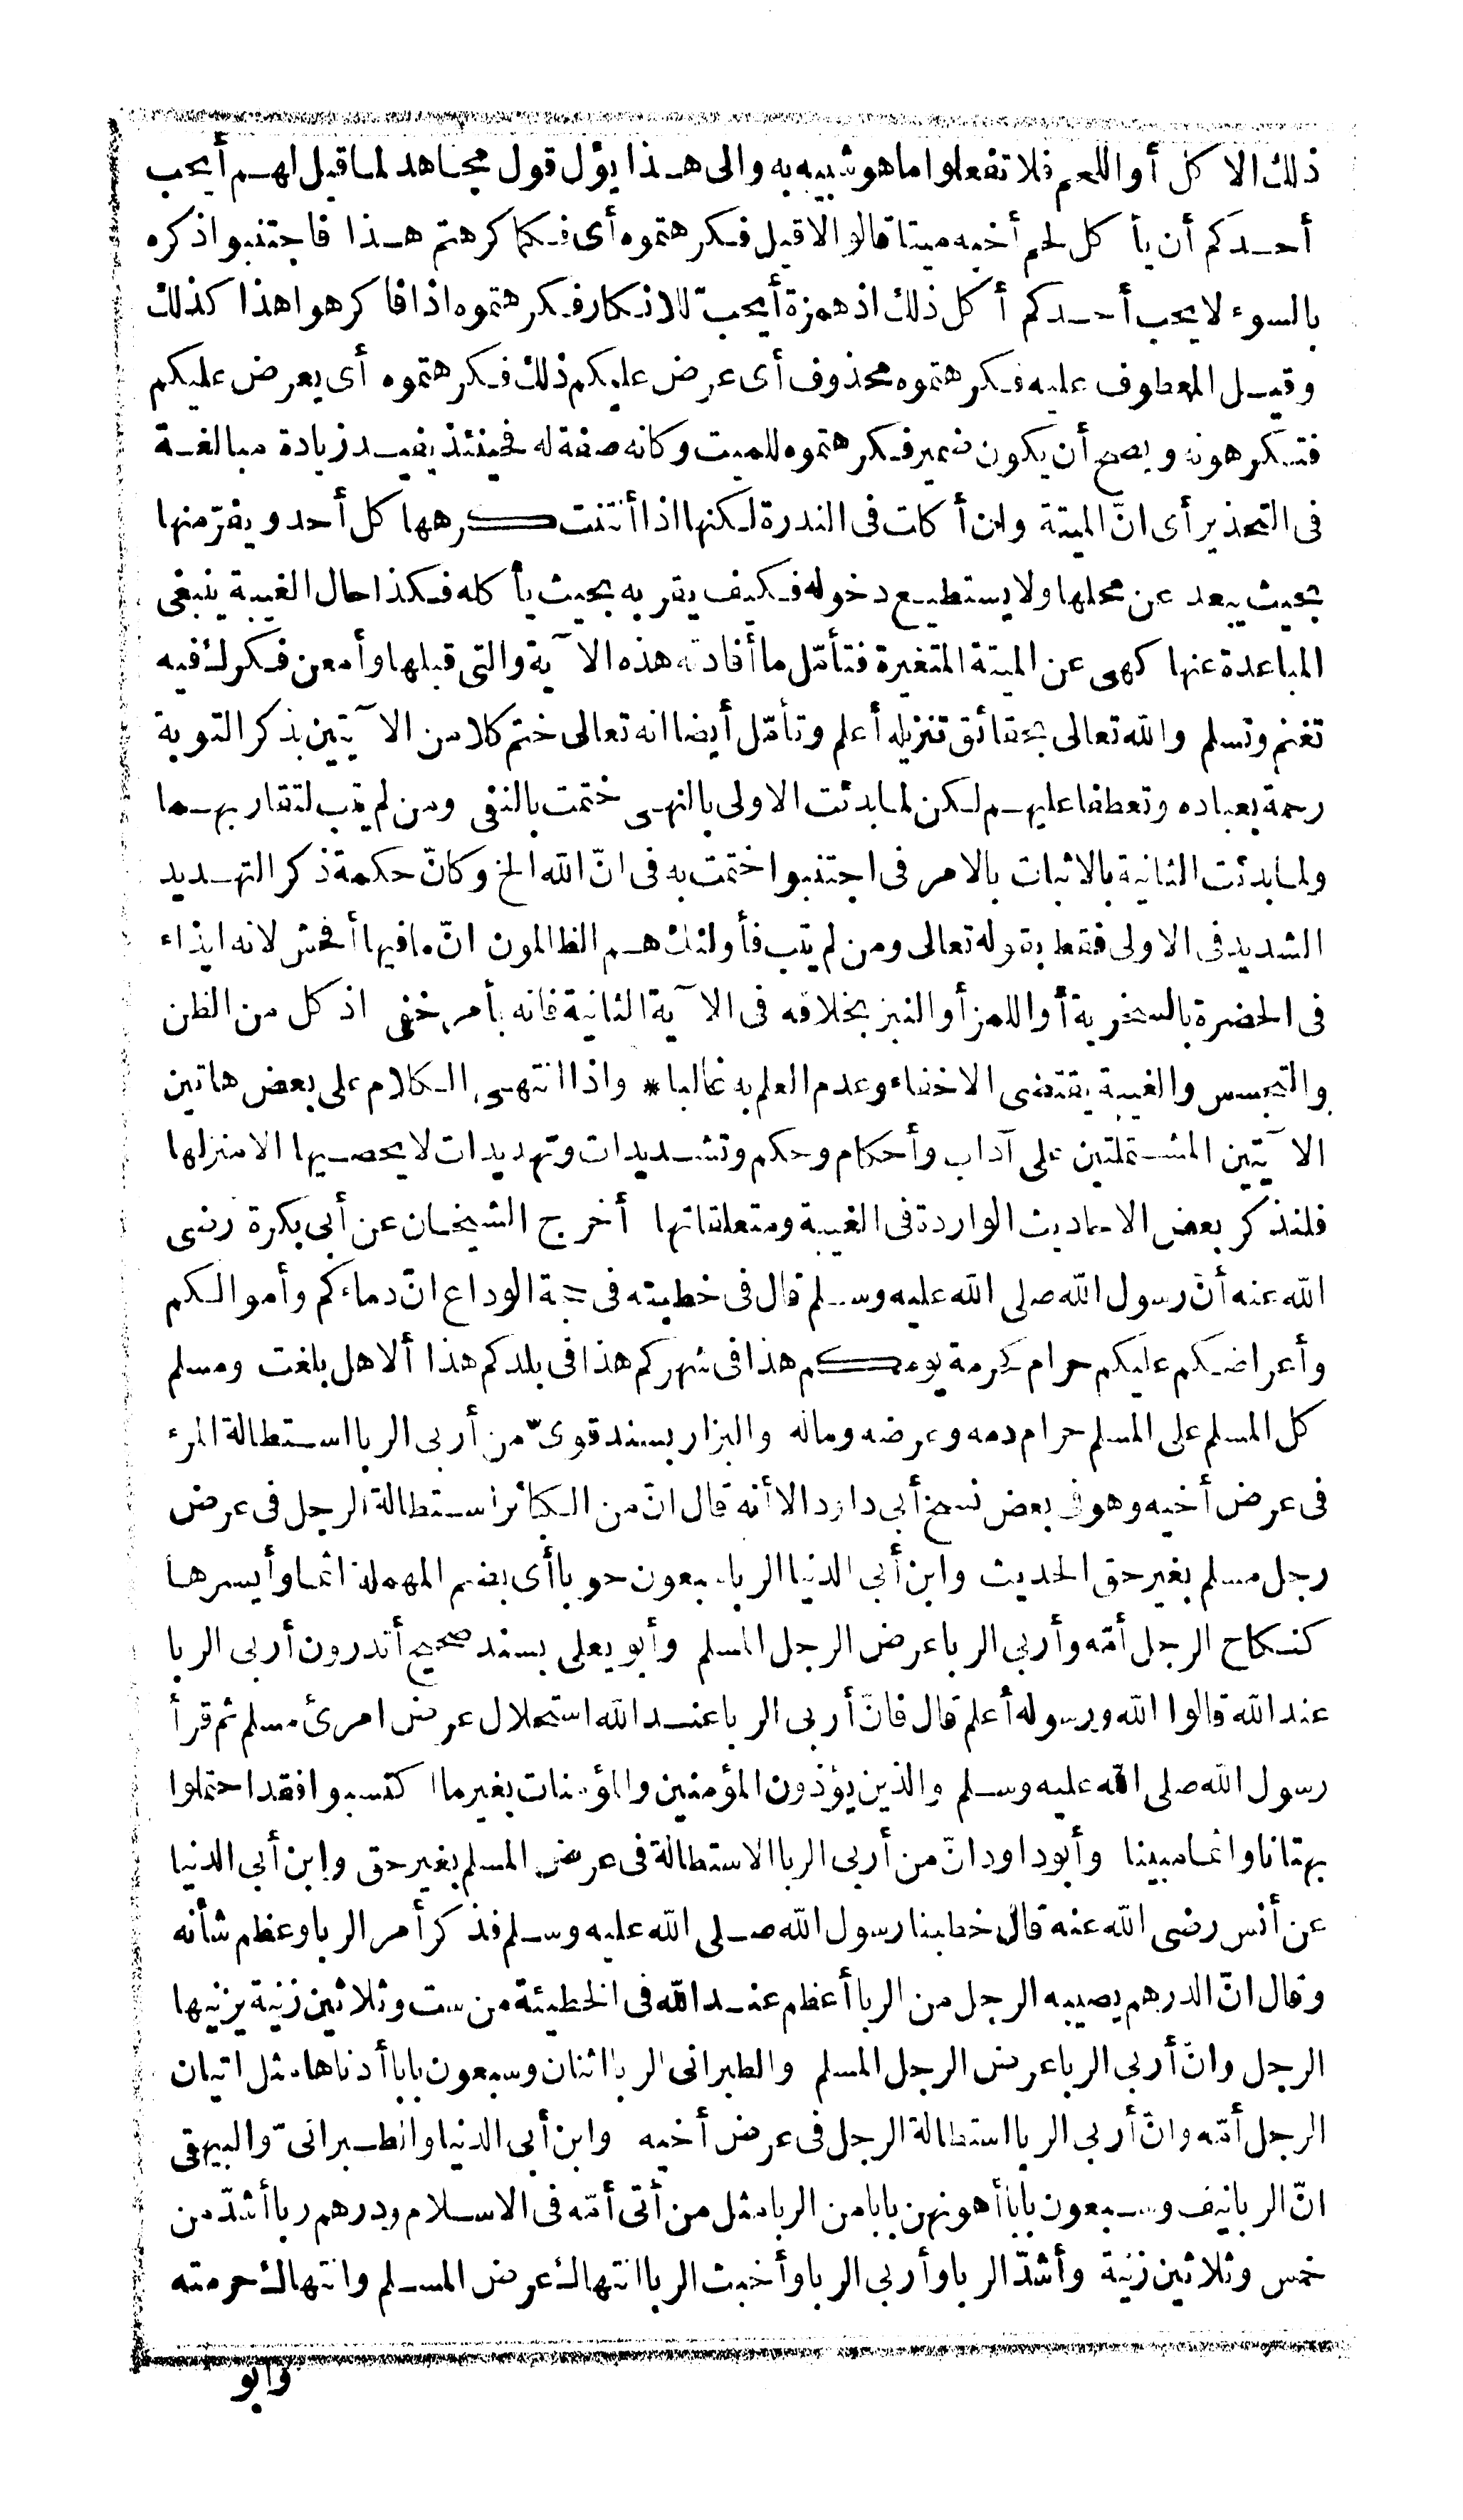 ذلك الا كل أو اللحم فلا تفعلوا ما هو شبيه به والى هذا يؤل قول مجاهد لما قيل لهم أيحب
أحدكم أن يأ كل لحم أخيه ميتا قالوا لا قيل فكرهتموه أى فكما كرهتم هذا فاجتنبوا ذكره
بالسوء لا يحب أحدكم أ كل ذلك اذ همزة أيحب للانكار فكرهتموه اذا فا كرهوا هذا كذلك
وقيل المعطوف عليه فكرهتموه محذوف أى عرض عليكم ذلك فكرهتموه أى يعرض عليكم
فتكرهونه ويصح أن يكون ضمير فكرهتموه للميت وكانه صفة له فحينئذ يفيد زيادة مبالغة
فى التحذير أى انّ الميتة وان أكات فى الندرة لكنها اذا أنتنت كرهها كل أحد ويفرّ منها
بحيث يبعد عن محلها ولا يستطيع دخوله فكيف يقربه بحيث يأ كله فكذا حال الغيبة ينبغى
المباعدة عنها كهى عن الميتة المتغيرة فتأمّل ما أفادته هذه الآية والتى قبلها وأمعن فكرك فيه
تغنم وتسلم والله تعالى بحقائق تنزيله أعلم وتأمّل أيضا انه تعالى ختم كلا من الآيتين بذكر التوبة
رحمة بعباده وتعطفا عليهم لكن لما بدئت الاولى بالنهى ختمت بالنفى ومن لم يتب لتقاربهما
ولما بدئت الثانية بالاثبات بالامر فى اجتنبوا ختمت به فى انّ الله الخ وكانّ حكمة ذكر التهديد
الشديد فى الاولى فقط بقوله تعالى ومن لم يتب فأولئك هم الظالمون انّ ما فيها أفحش لانه ايذاء
فى الحضرة بالسخرية أو اللمز أو النبز بخلافه فى الآية الثانية فانه بأمر خفى اذ كل من الظن
والتجسس والغيبة يقتضى الاخفاء وعدم العلم به غالبا * واذا انتهى الكلام على بعض هاتين
الآيتين المشتملتين على آداب وأحكام وحكم وتشديدات وتهديدات لا يحصيها الا منزلها
فلنذكر بعض الاحاديث الواردة فى الغيبة ومتعلقاتها أخرج الشيخان عن أبى بكرة رضى
الله عنه أنّ رسول الله صلى الله عليه وسلم قال فى خطبته فى حجة الوداع انّ دماءكم وأموالكم
وأعراضكم عليكم حرام كحرمة يومكم هذا فى شهركم هذا فى بلدكم هذا ألا هل بلغت ومسلم
كل المسلم على المسلم حرام دمه وعرضه وماله والبزار بسند قوىّ من أربى الربا استطالة المرء
فى عرض أخيه وهو فى بعض نسخ أبى داود الا أنه قال انّ من الكبائر استطالة الرجل فى عرض
رجل مسلم بغير حق الحديث وابن أبى الدنيا الربا سبعون حوبا أى بضم المهملة اثما وأيسرها
كنكاح الرجل أمّه وأربى الربا عرض الرجل المسلم وأبو يعلى بسند صحيح أتدرون أربى الربا
عند الله قالوا الله ورسوله أعلم قال فانّ أربى الربا عند الله استحلال عرض امرئ مسلم ثم قرأ
رسول الله صلى الله عليه وسلم والذين يؤذون المؤمنين والمؤمنات بغير ما اكتسبوا فقد احتملوا
بهتانا واثما مبينا وأبو داود انّ من أربى الربا الاستطالة فى عرض المسلم بغير حق وابن أبى الدنيا
عن أنس رضى الله عنه قال خطبنا رسول الله صلى الله عليه وسلم فذكر أمر الربا وعظم شأنه
وقال انّ الدرهم يصيبه الرجل من الربا أعظم عند الله فى الخطيئة من ست وثلاثين زنية يزنيها
الرجل وانّ أربى الربا عرض الرجل المسلم والطبرانى الربا اثنان وسبعون بابا أدناها مثل اتيان
الرجل أمّه وانّ أربى الربا استطالة الرجل فى عرض أخيه وابن أبى الدنيا والطبرانىّ والبيهقى
انّ الربا نيف وسبعون بابا أهونهن بابا من الربا مثل من أتى أمّه فى الاسلام ودرهم ربا أشدّ من
خمس وثلاثين زنية وأشدّ الربا وأربى الربا وأخبث الربا انتهاك عرض المسلم وانتهاك حرمته
وأبو